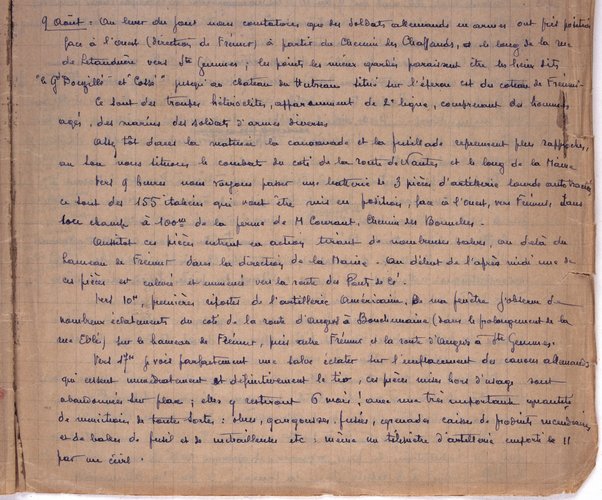 9 Aout : Au lever du jour nous constatons que des soldats allemands en armes ont pris position
face à l'ouest (direction de Frémur) à partir du Chemin des Chaffauds, et le long de la rue
de Létanduère vers Ste Gemmes ; les points les mieux gardés paraissent être les lieux dits
"le Gd Bouzillé" et "Cossé" jusqu'au chateau du Hutreau situé sur l'éperon est du coteau de Frémur.
Ce sont des troupes hétéroclites, apparemment de 2e ligne, comprenant des hommes
agés, des marins des soldats d'armes diverses
Assez tôt dans la matinée la canonnade et la fusillade reprennent plus rapprochées,
au son nous situons le combat du coté de la route de Nantes et le long de la Maine
Vers 9 heures nous voyons passer une batterie de 3 pièces d'artillerie lourde
ce sont des 155 italiens qui vont être mis en position, face à l'ouest, vers Frémur dans
un champ à 100m de la ferme de M Courant, Chemin des
Aussitot ces pièces entrent en action tirant de nombreuses salves, au delà du
hameau de Frémur dans la direction de la Maine. Au début de l'après midi une de
ces pièces est enlevée et emmenée vers la route des Ponts de Cé.
Vers 10h, premières ripostes de l'artillerie Américaine, de ma fenêtre j'observe de
nombreux éclatements du coté de la route d'Angers à Bouchemaine (dans le prolongement de la
rue Eblé) sur le hameau de Frémur, puis entre Frémur et la route d'Angers à Ste Gemmes.
Vers 17h je vois parfaitement une salve éclater sur l'emplacement des canons allemands
qui cessent immédiatement et définitivement le tir, ces pièces mises hors d'usage sont
abandonnées sur place ; elles y resteront 6 mois ! avec une très importante quantité
de munitions de toute sorte : obus, gargousses, fusées, grenades caisse de produits incendiaires
et de balles de fusil et de mitrailleuses etc : même un télémètre d'artillerie emporté le 11
par un civil.